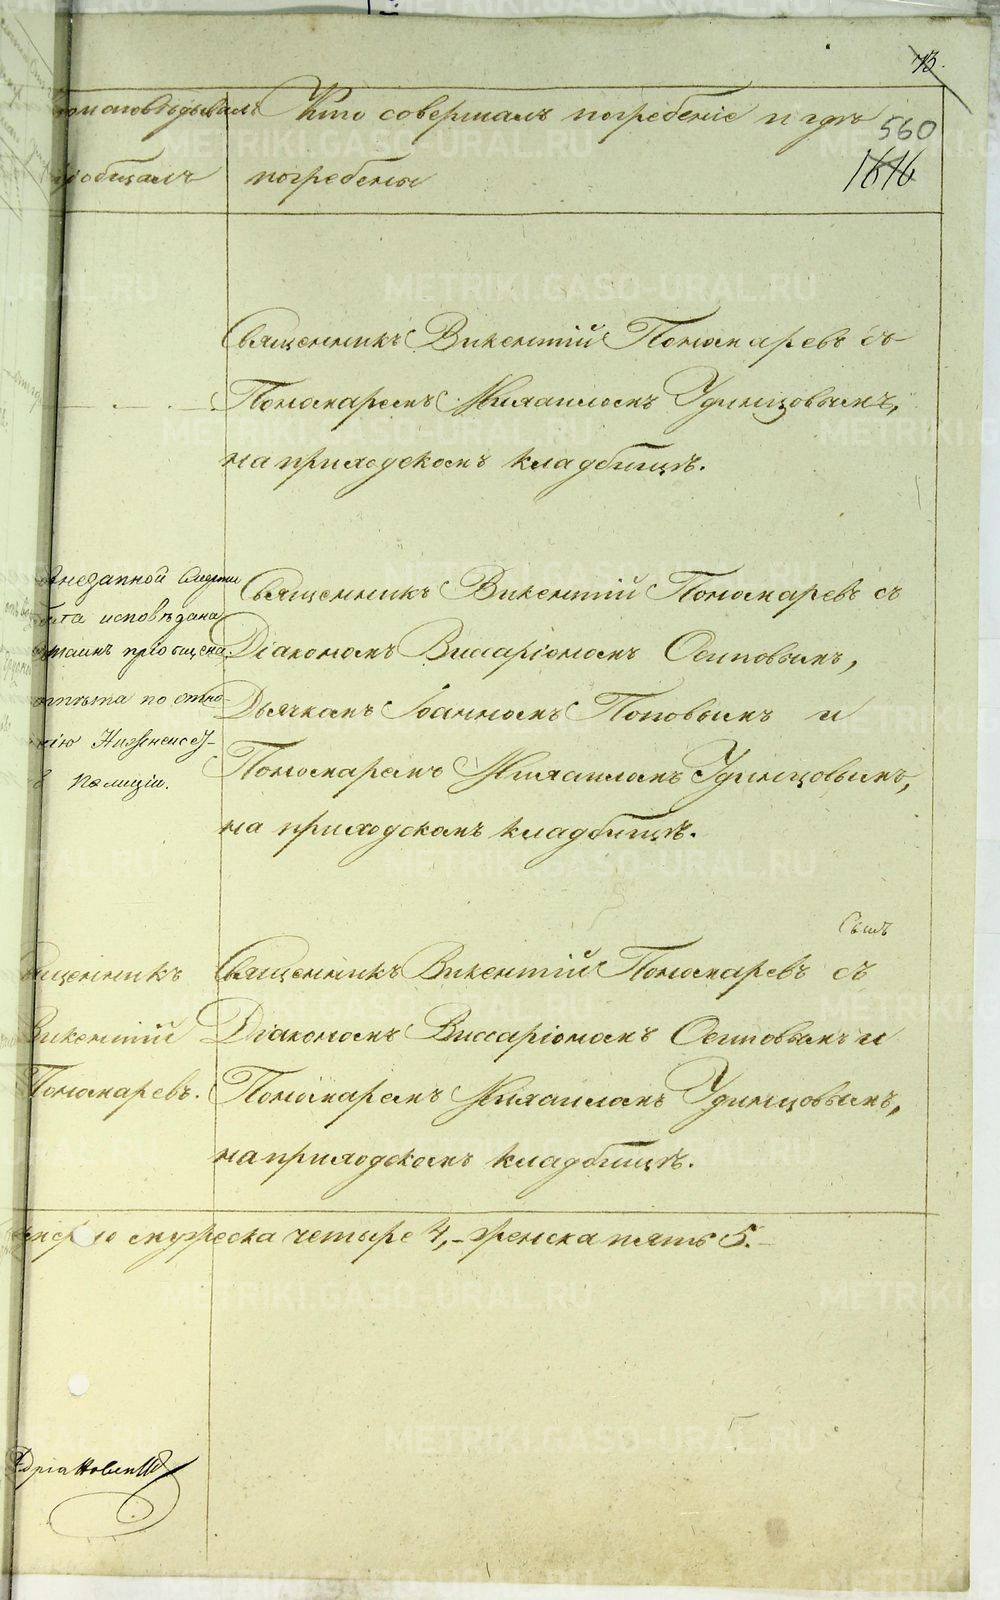 73.
Кто исповѣдывалъ
Кто совершалъ погребеніе и гдѣ
560
1616
пріобщалъ
погребены
Священникъ Викентій Пономаревъ съ
Пономаремъ Михаиломъ Удинцовымъ,
на приходскомъ кладбищѣ.
внезапной смерти
исповѣдана
пріобщена.
отпѣта по отно-
Нижнеисет-
Полиціи.
Священникъ Викентій Пономаревъ съ
Діакономъ Виссаріономъ Осиповымъ,
Дьячкомъ Іоанномъ Поповымъ и
Пономаремъ Михаиломъ Удинцовымъ,
на приходскомъ кладбищѣ.
Священникъ
Викентій
Пономаревъ.
Священникъ Викентій Пономаревъ съ
Діакономъ Виссаріономъ Осиповымъ и
Пономаремъ Михаиломъ Удинцовымъ,
на приходскомъ кладбищѣ.
мужеска четыре 4, - женска пять 5.
METRIKI.GASO-URAL.RU